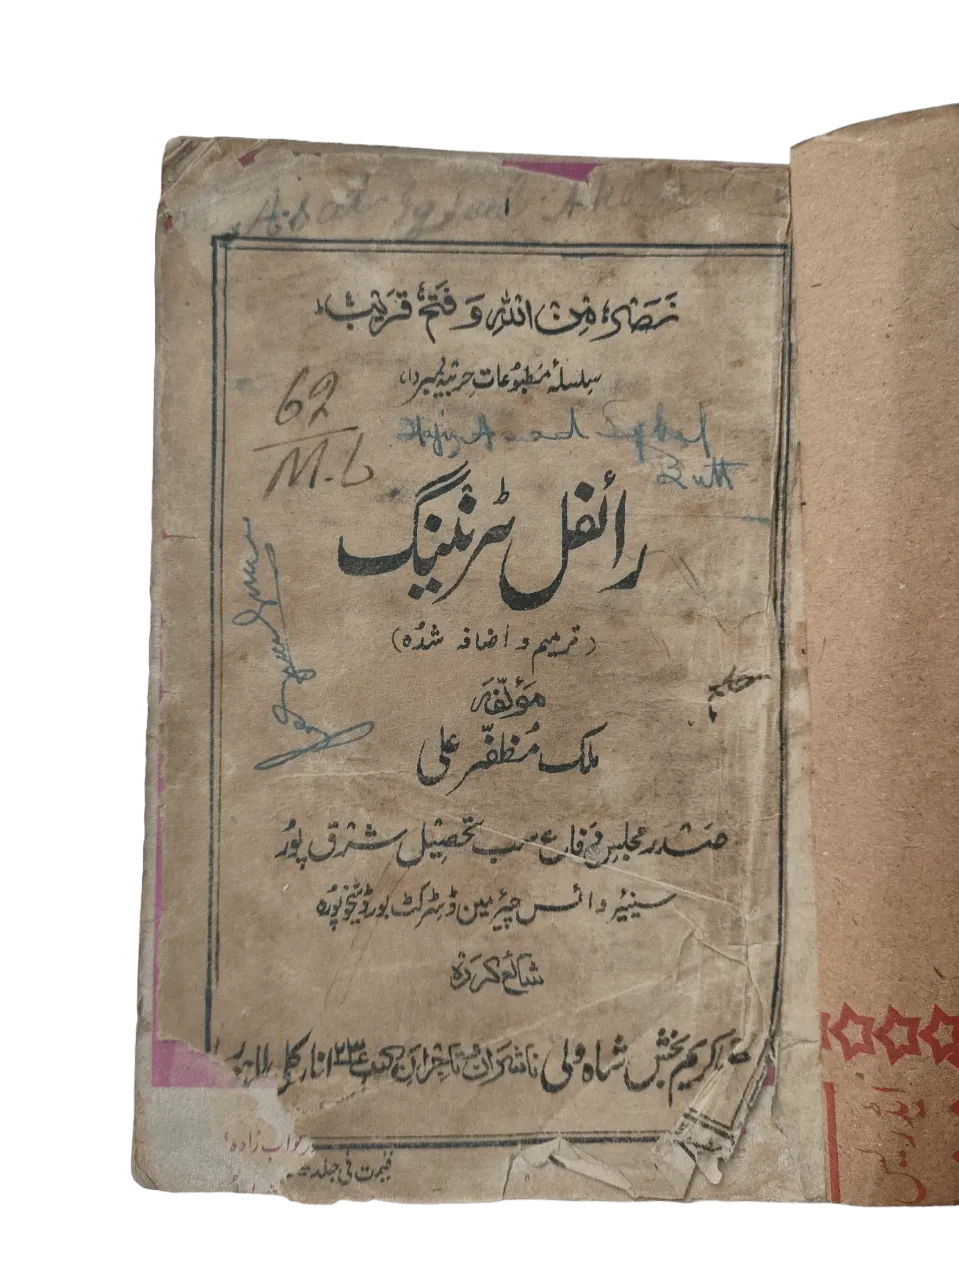 Asad Iqbal
نَصْرٌ مِّنَ اللّٰهِ وَفَتْحٌ قَرِیْبٌ
سلسلۂ مطبوعات حربیہ نمبر (۱)
62
M.L
Hafiz Asad Iqbal
Butt
رائفل ٹریننگ
(ترمیم و اضافہ شدہ)
مؤلفہ
ملک مُظفّر علی
صدر مجلس دفاع سب تحصیل شرق پور
سینئیر وائس چیئرمین ڈسٹرکٹ بورڈ شیخوپورہ
شائع کردہ
کریم بخش شاہ ولی ناشران و تاجران کتب ۲۳ انار کلی لاہور
نواب زادہ
قیمت فی جلد